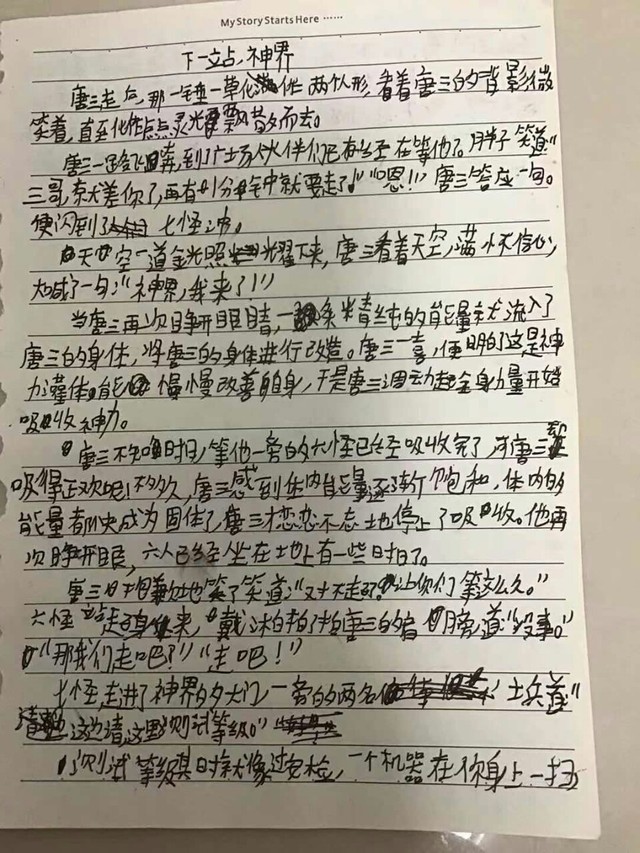 My Story Starts Here ……
下一立占,神界
唐三走后,那一锤一草化作两个人形,看着唐三的背影微
笑着,直至化作点点灵光飘散而去。
唐三一路飞奔,到了广场伙伴们已经在等他了。胖子笑道"
三哥,就差你了,再有1分钟就要走了!""恩!"唐三答应一句。
便闪到了七怪之中。
天空一道金光照耀下来,唐三看着天空,满怀信心,
大喊了一句:"神界,我来了!"
当唐三再次睁开眼睛,一条米青纯的能量流入了
唐三的身体,将唐三的身体进行改造。唐三一喜,便明白了这是神
力灌体能慢慢改善自身,于是唐三调动起全身力量开始
吸收神力。
唐三不知唯时日,等他一旁的六怪已经吸收完了,唐三
吸得正欢呢!不多久,唐三感到体内能量逐渐饱和,体内的
能量都快成为固体了,唐三才恋恋不忘地停止了吸收。他再
次睁开眼,六人已经坐在地上有一些时日了。
唐三抱歉地笑了笑道:"对不起了,让你们等这么久。"
六怪站起身来,戴沐白拍了拍唐三的肩膀道"没事。"
"那我们走吧!""走吧!"
七怪走进了神界的大门一旁的两名士兵道"
这边请,这里测试等级。"
测试等级其时就像过安检,一个机器在你身上一扫